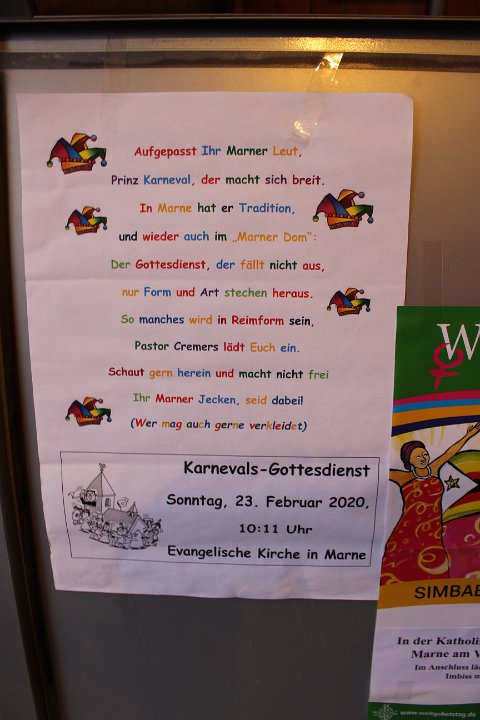 Aufgepasst Ihr Marner Leut,
Prinz Karneval, der macht sich breit.
In Marne hat er Tradition,
und wieder auch im „Marner Dom":
Der Gottesdienst, der fällt nicht aus,
nur Form und Art stechen heraus.
So manches wird in Reimform sein,
Pastor Cremers lädt Euch ein.
Schaut gern herein und macht nicht frei
Ihr Marner Jecken, seid dabei!
(Wer mag auch gerne verkleidet)
Karnevals-Gottesdienst
Sonntag, 23. Februar 2020,
10:11 Uhr
Evangelische Kirche in Marne
W
SIMBAB
In der Katholi
Marne am V
Im Anschluss lä
Imbiss
www.weltgebetstag.de